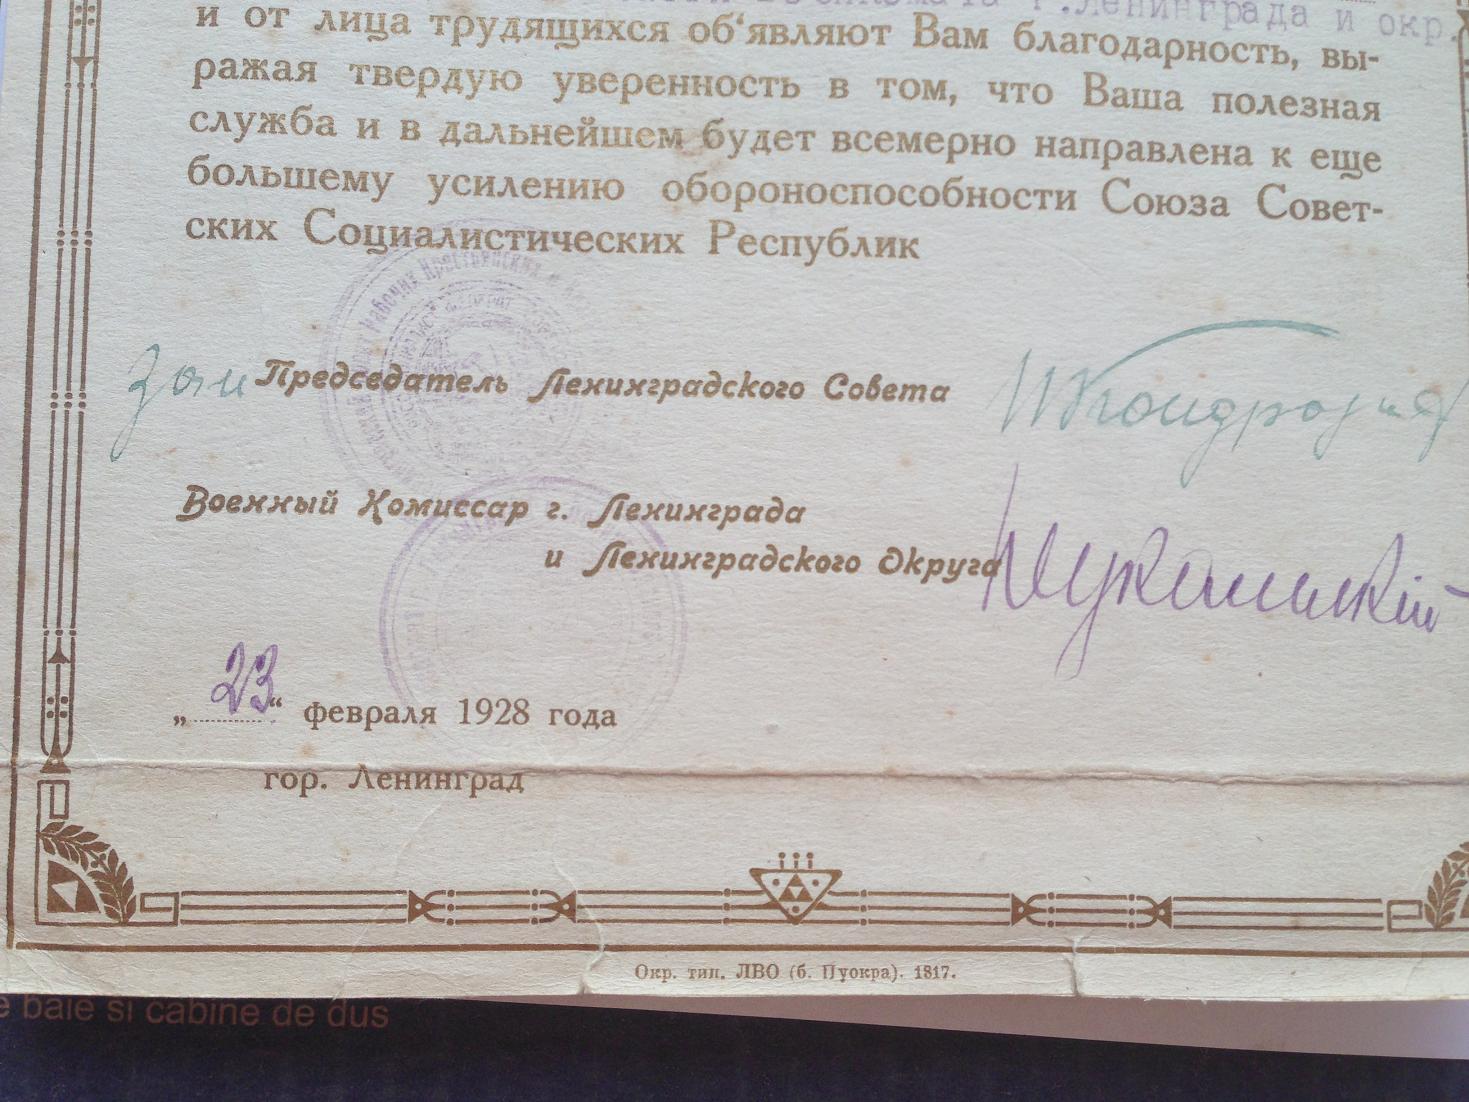 г.Ленинграда и окр.
и от лица трудящихся об‘являют Вам благодарность, вы-
ражая твердую уверенность в том, что Ваша полезная
служба и в дальнейшем будет всемерно направлена к еще
большему усилению обороноспособности Союза Совет-
ских Социалистических Республик
Зам Председатель Ленинградского Совета
Военный Комиссар г. Ленинграда
и Ленинградского Округа
„23“ февраля 1928 года
гор. Ленинград
Окр. тип. ЛВО (б. Пуокра). 1817.
e baie si cabine de dus